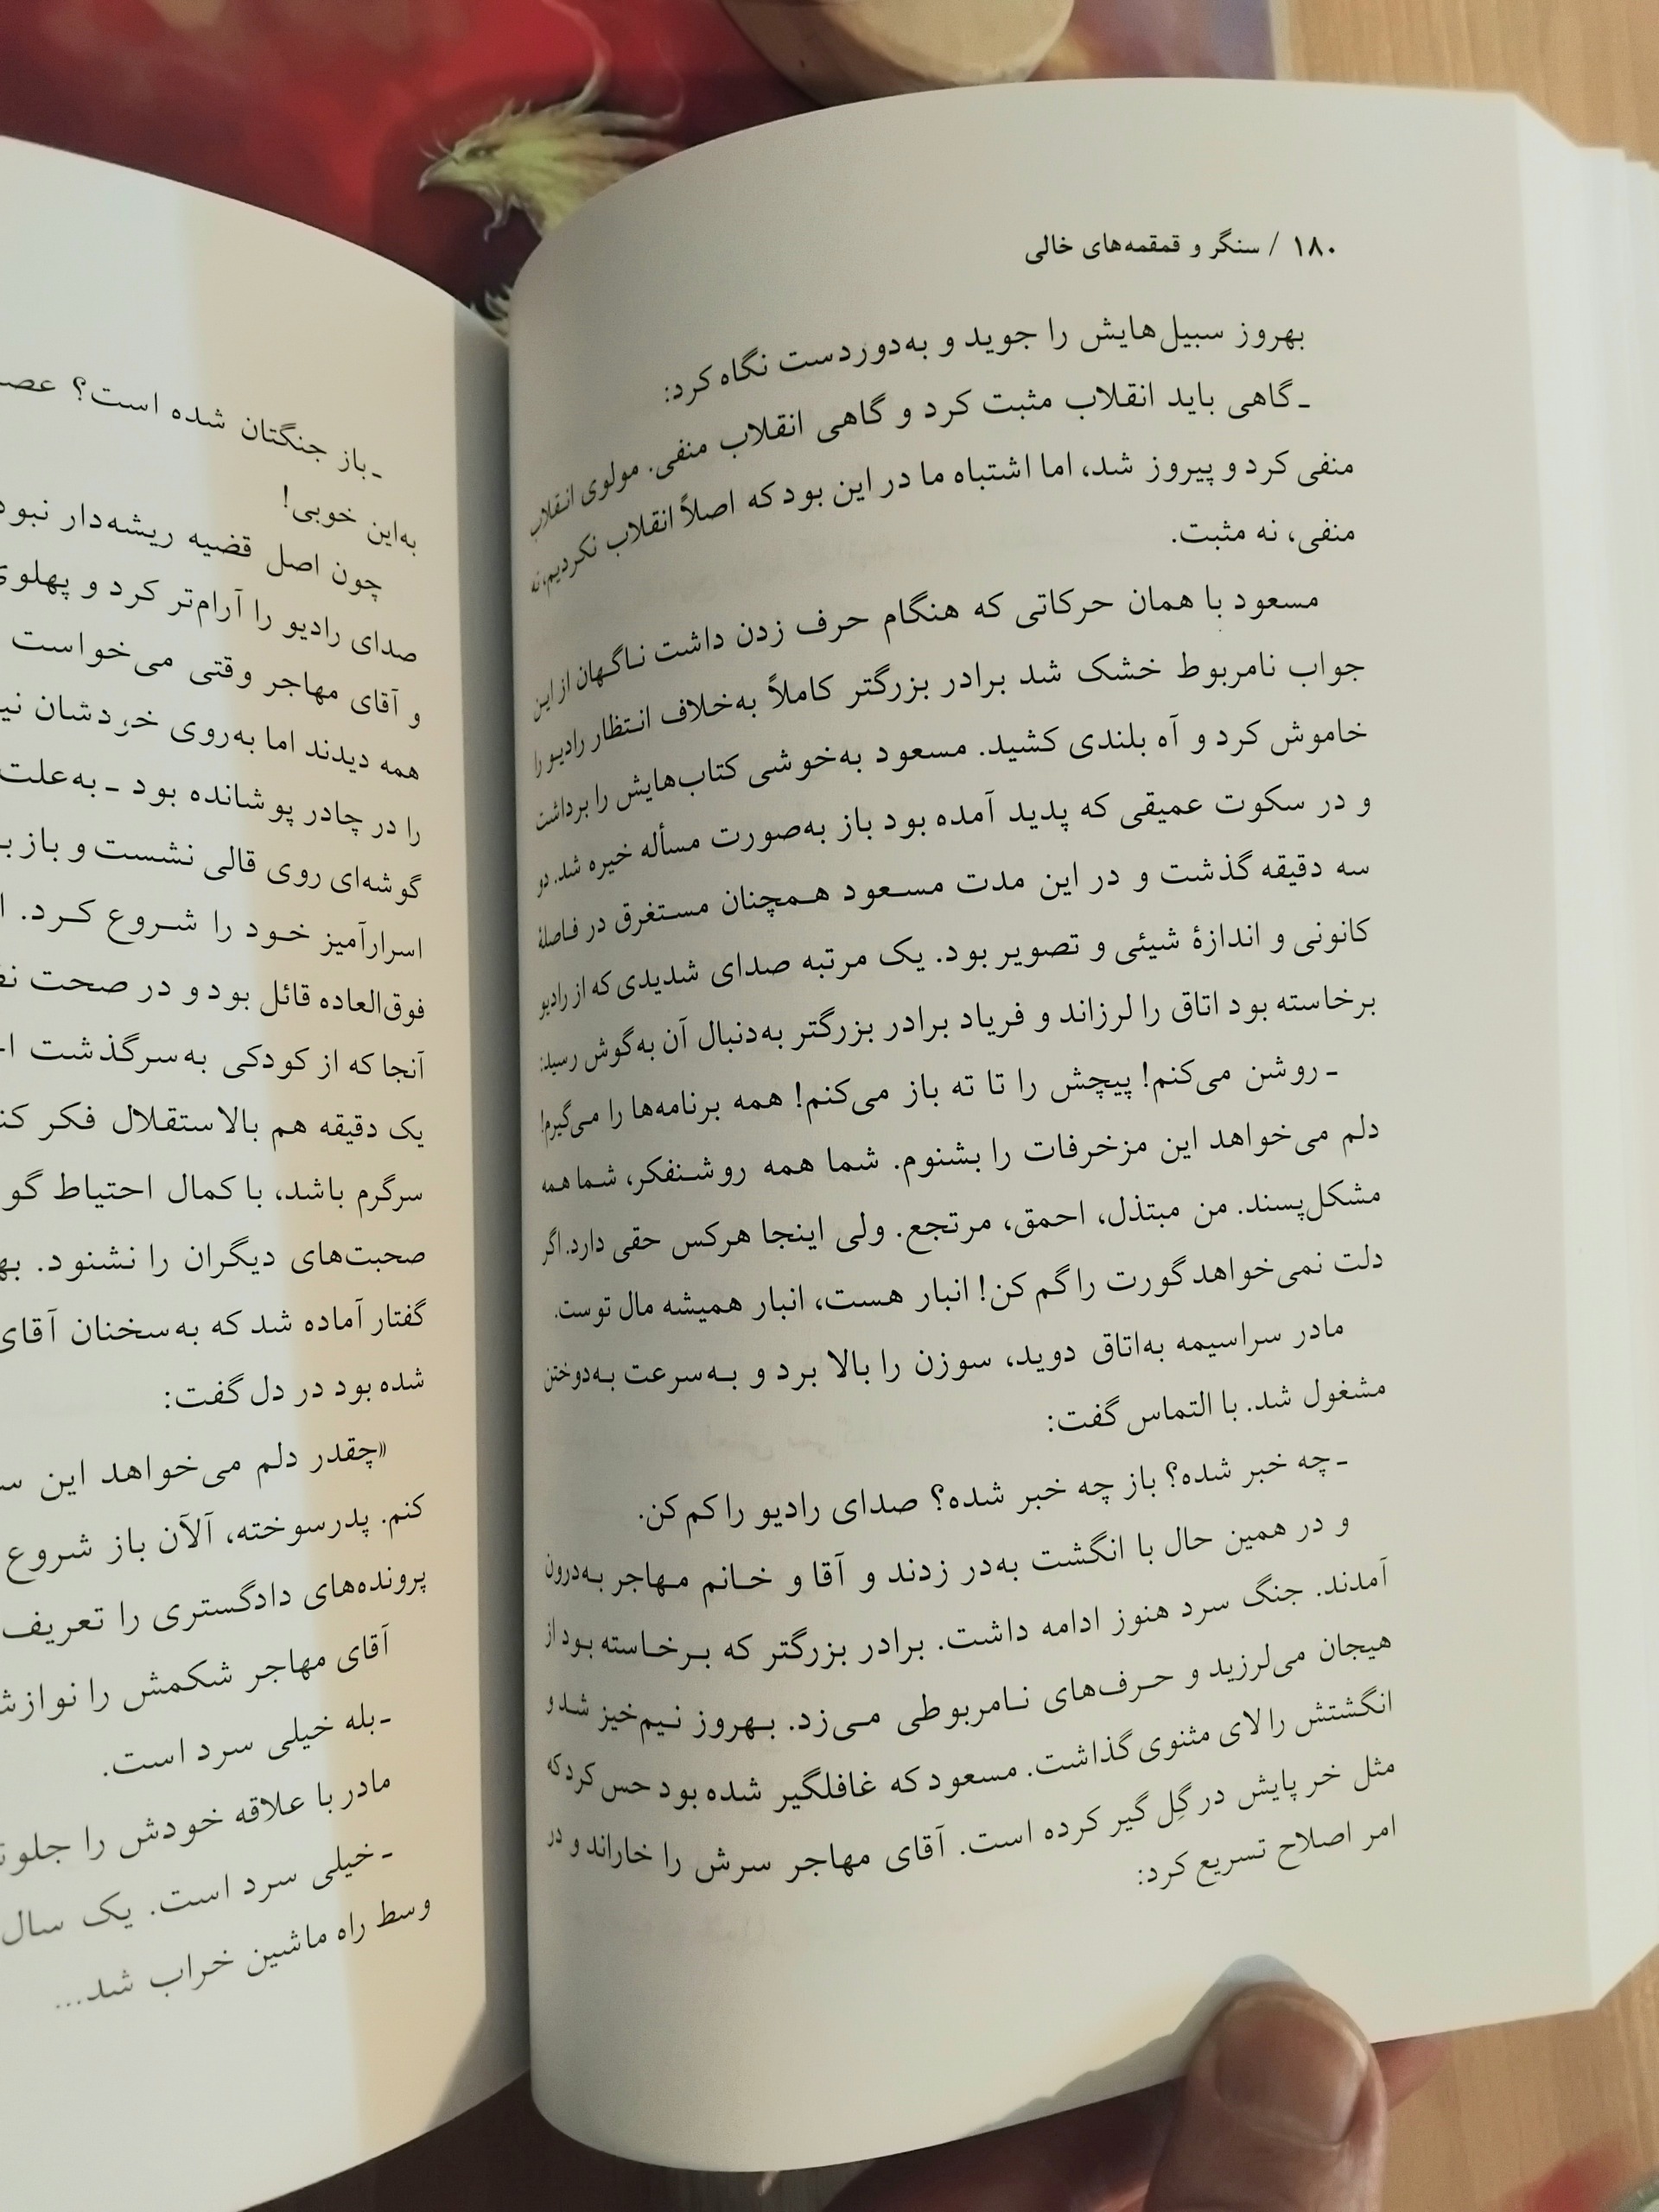 ۱۸۰ / سنگر و قمقمه‌های خالی
بهروز سبیل‌هایش را جوید و به‌دوردست نگاه کرد:
ـ گاهی باید انقلاب مثبت کرد و گاهی انقلاب منفی. مولوی انقلاب
منفی کرد و پیروز شد، اما اشتباه ما در این بود که اصلاً انقلاب نکردیم، نه
منفی، نه مثبت.
مسعود با همان حرکاتی که هنگام حرف زدن داشت ناگهان از این
جواب نامربوط خشک شد برادر بزرگتر کاملاً به‌خلاف انتظار رادیو را
خاموش کرد و آه بلندی کشید. مسعود به‌خوشی کتاب‌هایش را برداشت
و در سکوت عمیقی که پدید آمده بود باز به‌صورت مسأله خیره شد. دو
سه دقیقه گذشت و در این مدت مسعود همچنان مستغرق در فاصلهٔ
کانونی و اندازهٔ شیئی و تصویر بود. یک مرتبه صدای شدیدی که از رادیو
برخاسته بود اتاق را لرزاند و فریاد برادر بزرگتر به‌دنبال آن به‌گوش رسید:
ـ روشن می‌کنم! پیچش را تا ته باز می‌کنم! همه برنامه‌ها را می‌گیرم!
دلم می‌خواهد این مزخرفات را بشنوم. شما همه روشنفکر، شما همه
مشکل‌پسند. من مبتذل، احمق، مرتجع. ولی اینجا هرکس حقی دارد. اگر
دلت نمی‌خواهد گورت را گم کن! انبار هست، انبار همیشه مال توست.
مادر سراسیمه به‌اتاق دوید، سوزن را بالا برد و به‌سرعت به‌دوختن
مشغول شد. با التماس گفت:
ـ چه خبر شده؟ باز چه خبر شده؟ صدای رادیو را کم کن.
و در همین حال با انگشت به‌در زدند و آقا و خانم مهاجر به‌درون
آمدند. جنگ سرد هنوز ادامه داشت. برادر بزرگتر که برخاسته بود از
هیجان می‌لرزید و حرف‌های نامربوطی می‌زد. بهروز نیم‌خیز شد و
انگشتش را لای مثنوی گذاشت. مسعود که غافلگیر شده بود حس کرد که
مثل خر پایش در گِل گیر کرده است. آقای مهاجر سرش را خاراند و در
امر اصلاح تسریع کرد:
ـ باز جنگتان شده است؟
به‌این خوبی!
چون اصل قضیه ریشه‌دار نبود
صدای رادیو را آرام‌تر کرد و پهلوی
و آقای مهاجر وقتی می‌خواست
همه دیدند اما به‌روی خودشان
را در چادر پوشانده بود ـ به‌علت
گوشه‌ای روی قالی نشست و باز
اسرارآمیز خود را شروع کرد.
فوق‌العاده قائل بود و در صحت
آنجا که از کودکی به‌سرگذشت
یک دقیقه هم بالاستقلال فکر
سرگرم باشد، با کمال احتیاط
صحبت‌های دیگران را نشنود.
گفتار آماده شد که به‌سخنان آقای
شده بود در دل گفت:
«چقدر دلم می‌خواهد این
کنم. پدرسوخته، آلآن باز شروع
پرونده‌های دادگستری را تعریف
آقای مهاجر شکمش را
ـ بله خیلی سرد است.
مادر با علاقه خودش را
ـ خیلی سرد است. یک سال
وسط راه ماشین خراب شد...